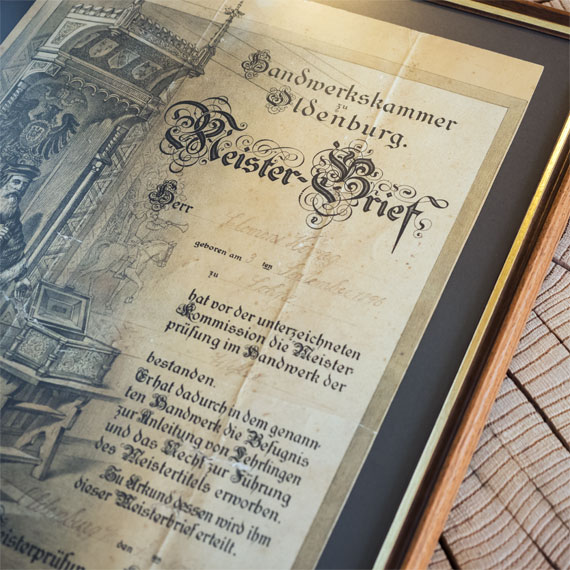 Handwerkskammer
zu
Oldenburg.
Meister-Brief
Herr
geboren am ten
zu
hat vor der unterzeichneten
Kommission die Meister
prüfung im Handwerk der
bestanden.
Er hat dadurch in dem genann-
ten Handwerk die Befugnis
zur Anleitung von Lehrlingen
und das Recht zur Führung
des Meistertitels erworben.
Zu Urkund dessen wird ihm
dieser Meisterbrief erteilt.
Oldenburg den